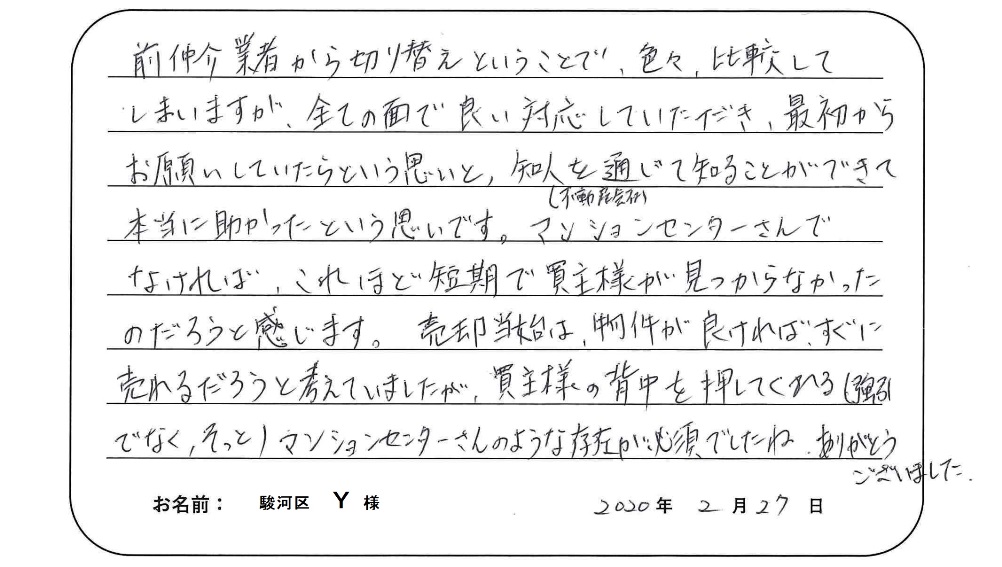 前仲介業者から切り替えということで、色々、比較して
しまいますが、全ての面で良い対応していただき、最初から
お願いしていたらという思いと、知人を通じて知ることができて
(不動産会社)
本当に助かったという思いです。マンションセンターさんで
なければ、これほど短期で買主様が見つからなかった
のだろうと感じます。売却当始は、物件が良ければ、すぐに
売れるだろうと考えていましたが、買主様の背中を押してくれる(強引
でなく、そっと)マンションセンターさんのような存在が必須でしたね。ありがとう
ございました.
お名前： 駿河区 Y 様 2020 年 2 月 27 日